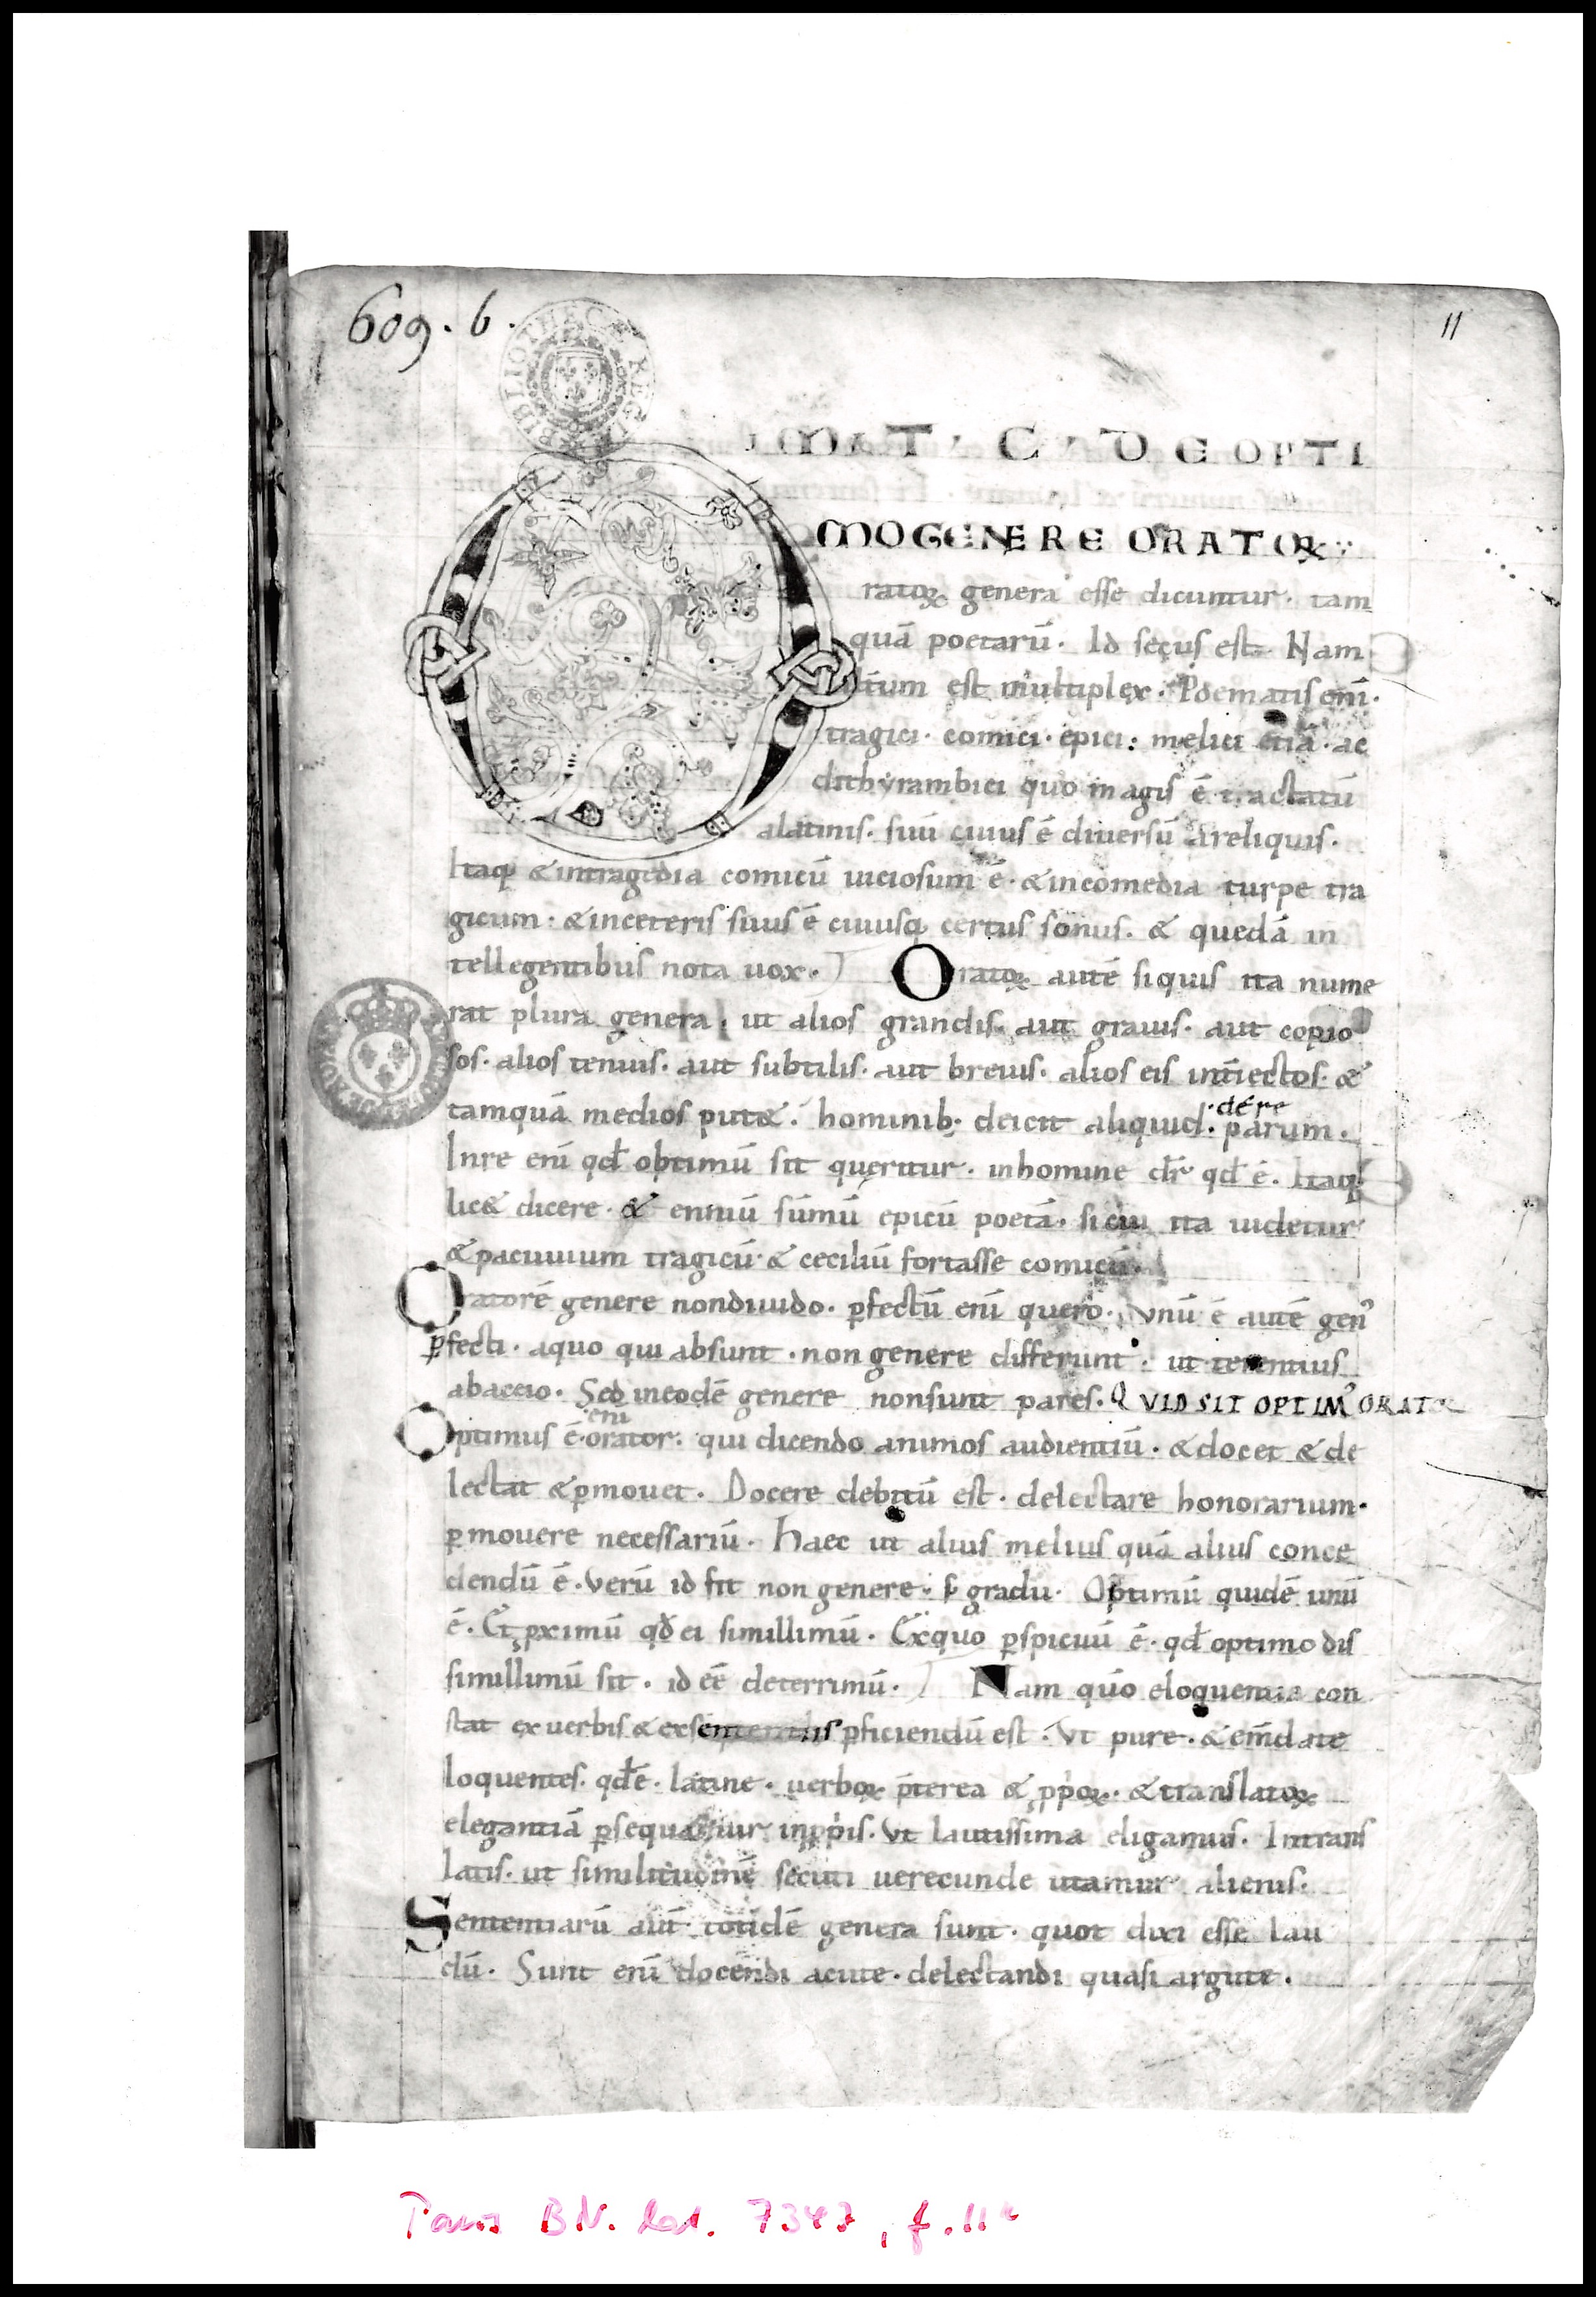 609. 6.
11
BIBLIOTHECÆ REGIÆ
M T. C. DE OPTI
MO GENERE ORATOꝝ
ratoꝝ genera esse dicuntur. tam
quā poetarū. Id secus est. Nam
alterum est multiplex. Poematis enī.
tragici. comici. epici. melici etiā. ac
dithyrambici quo magis ē tractatū
alatinis. suū cuius ē diuersū areliquis.
Itaq; &intragedia comicū uiciosum ē. &incomedia turpe tra
gicum. &inceteris suus ē cuiusq; certus sonus. & quedā in
tellegentibus nota uox. Oratoꝝ autē siquis ita nume
rat plura genera. ut alios grandis. aut grauis. aut copio
sos. alios tenuis. aut subtilis. aut breuis. alios eis int̄iectos. &
tamquā medios put&. hominib. deicit aliquid. parum.
.dere
Inre enī qđ obtimū sit queritur. inhomine dr̄ qđ ē. Itaq;
lic& dicere. & enniū sūmū epicū poetā. sicui ita uidetur
&pacuuium tragicū. & ceciliū fortasse comicū.
Oratorē genere nondiuido. ꝑfectū enī quero. Vnū ē autē genꝰ
ꝑfecti. aquo qui absunt. non genere differunt. ut terentius
abaccio. Sed ineodē genere nonsunt pares. QVID SIT OPTIMꝰ ORATOR
Optimus ē. orator. qui dicendo animos audientiū. &docet & de
enī
lectat &ꝑmouet. Docere debitū est. delectare honorarium.
ꝑmouere necessariū. Haec ut alius melius quā alius conce
dendū ē. Verū id fit non genere. s; gradu. Optimū quidē unū
ē. Et ꝓximū qđ ei simillimū. Exquo ꝑspicuū ē. qđ optimo dis
simillimū sit. id eē deterrimū. Nam quō eloquentia con
stat exuerbis &exsententiis ꝑficiendū est. Vt pure. &em̄date
loquentes. qđē. latine. uerboꝝ p̄terea & ꝓp̄oꝝ. &translatoꝝ
elegantiā ꝑsequamur inꝓp̄is. Vt lautissima eligamus. Intrans
latis. ut similitudinē secuti uerecunde utamur alienis.
Sententiarū aut̄ totidē genera sunt. quot dixi esse lau
dū. Sunt enī docendi acute. delectandi quasi argute.
Paris BN. lat. 7347, f. 11r